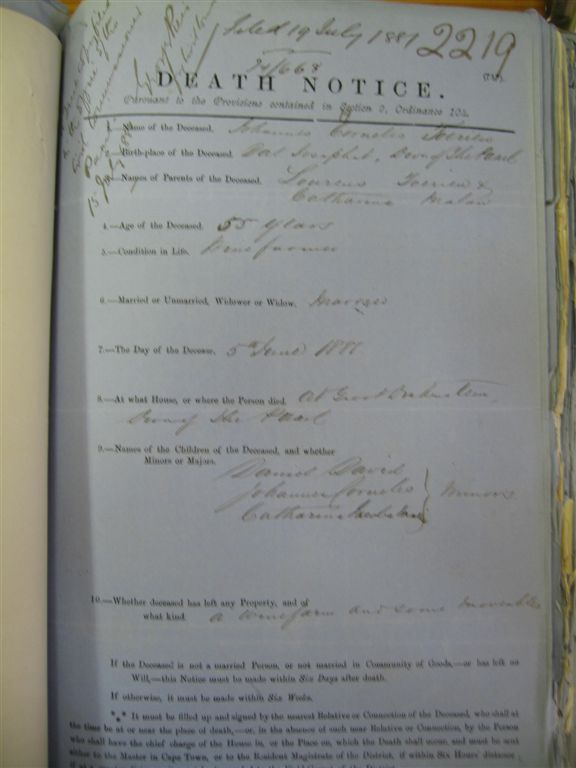 Filed 19 July 1881 2219
7/668
DEATH NOTICE.
Pursuant to the Provisions contained in Section 9, Ordinance 104.
1.—Name of the Deceased. Johannes Cornelis
2.—Birth-place of the Deceased. Dal Josaphat, Div of The Paarl
3.—Names of Parents of the Deceased. Lourens &
Catharina Malan
4.—Age of the Deceased. 55 years
5.—Condition in Life. Wine farmer
6.—Married or Unmarried, Widower or Widow. Married
7.—The Day of the Decease. 5th June 1881
8.—At what House, or where the Person died. At Groot Drakenstein,
Div of The Paarl
9.—Names of the Children of the Deceased, and whether
Minors or Majors.
Daniel David
Johannes Cornelis
Catharina
Minors
10.—Whether deceased has left any Property, and of
what kind a wine farm and some moveables
If the Deceased is not a married Person, or not married in Community of Goods,—or has left no
Will,—this Notice must be made within Six Days after death.
If otherwise, it must be made within Six Weeks.
*** It must be filled up and signed by the nearest Relative or Connection of the Deceased, who shall at
the time be at or near the place of death,—or, in the absence of such near Relative or Connection, by the Person
who shall have the chief charge of the House in, or the Place on, which the Death shall occur, and must be sent
either to the Master in Cape Town, or to the Resident Magistrate of the District, if within Six Hours' distance;